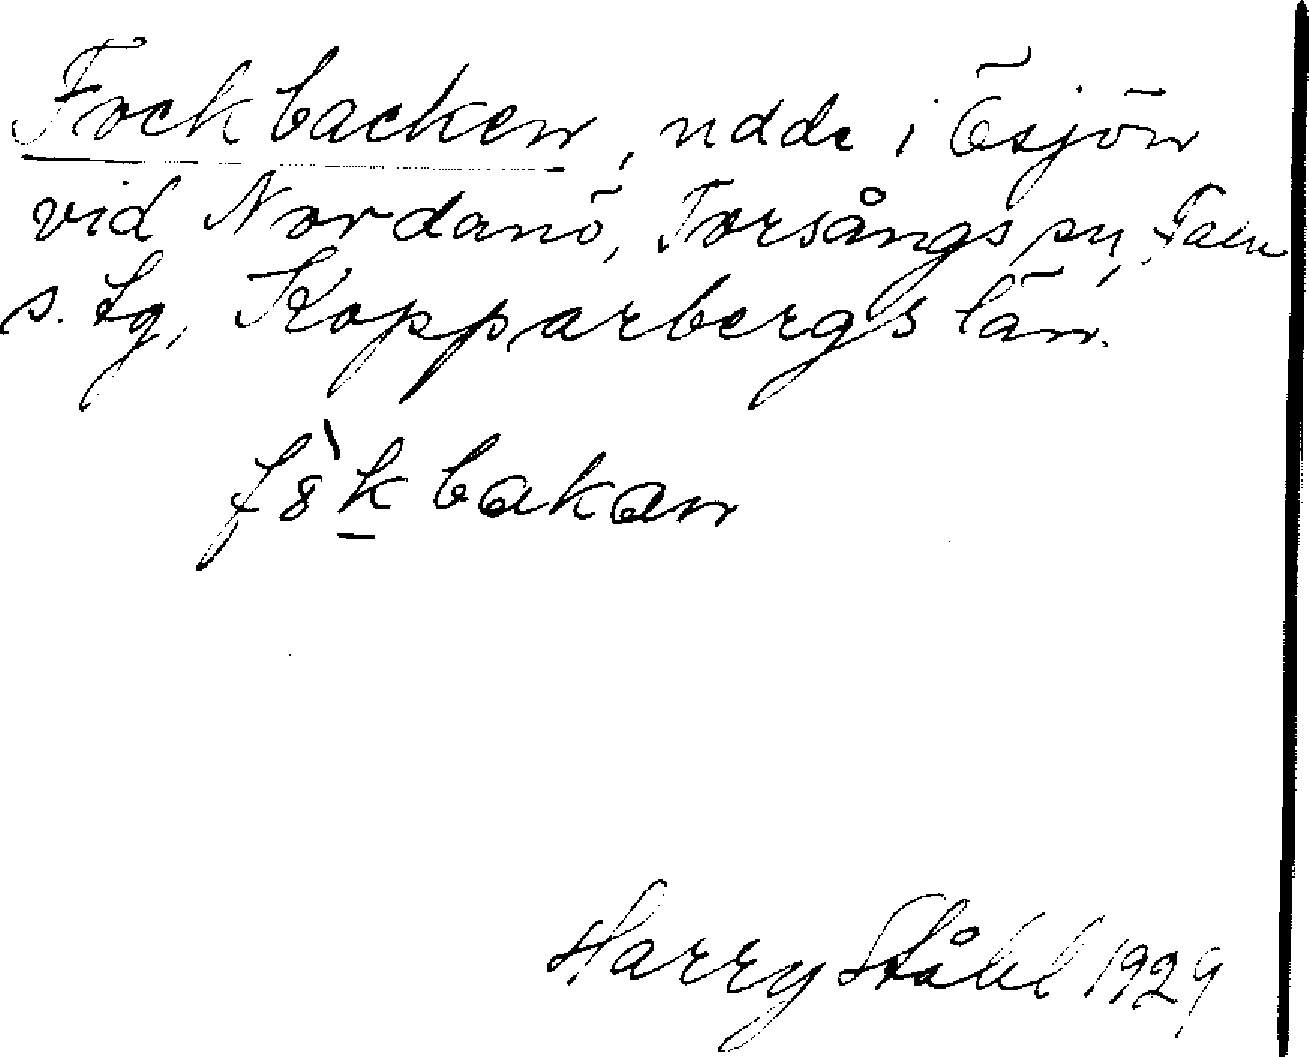 Fockbacken, udde i Ösjön
vid Nordanö, Torsångs sn, Falu
s. lg, Kopparbergs län.
fo̊̀kbakan
Harry Ståhl 1929